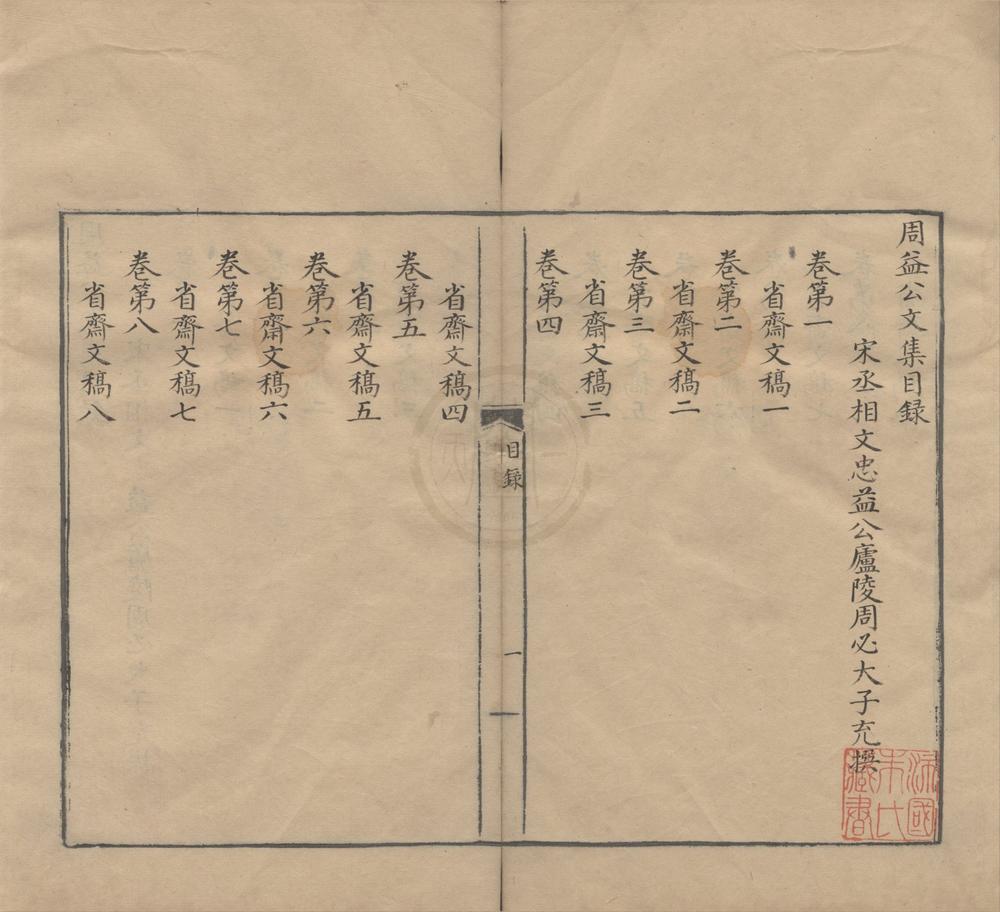 周益公文集目録
宋丞相文忠益公廬陵周必大子充撰
卷第一
省齋文稿一
卷第二
省齋文稿二
卷第三
省齋文稿三
卷第四
目録
一
省齋文稿四
卷第五
省齋文稿五
卷第六
省齋文稿六
卷第七
省齋文稿七
卷第八
省齋文稿八
國
朱氏
藏書